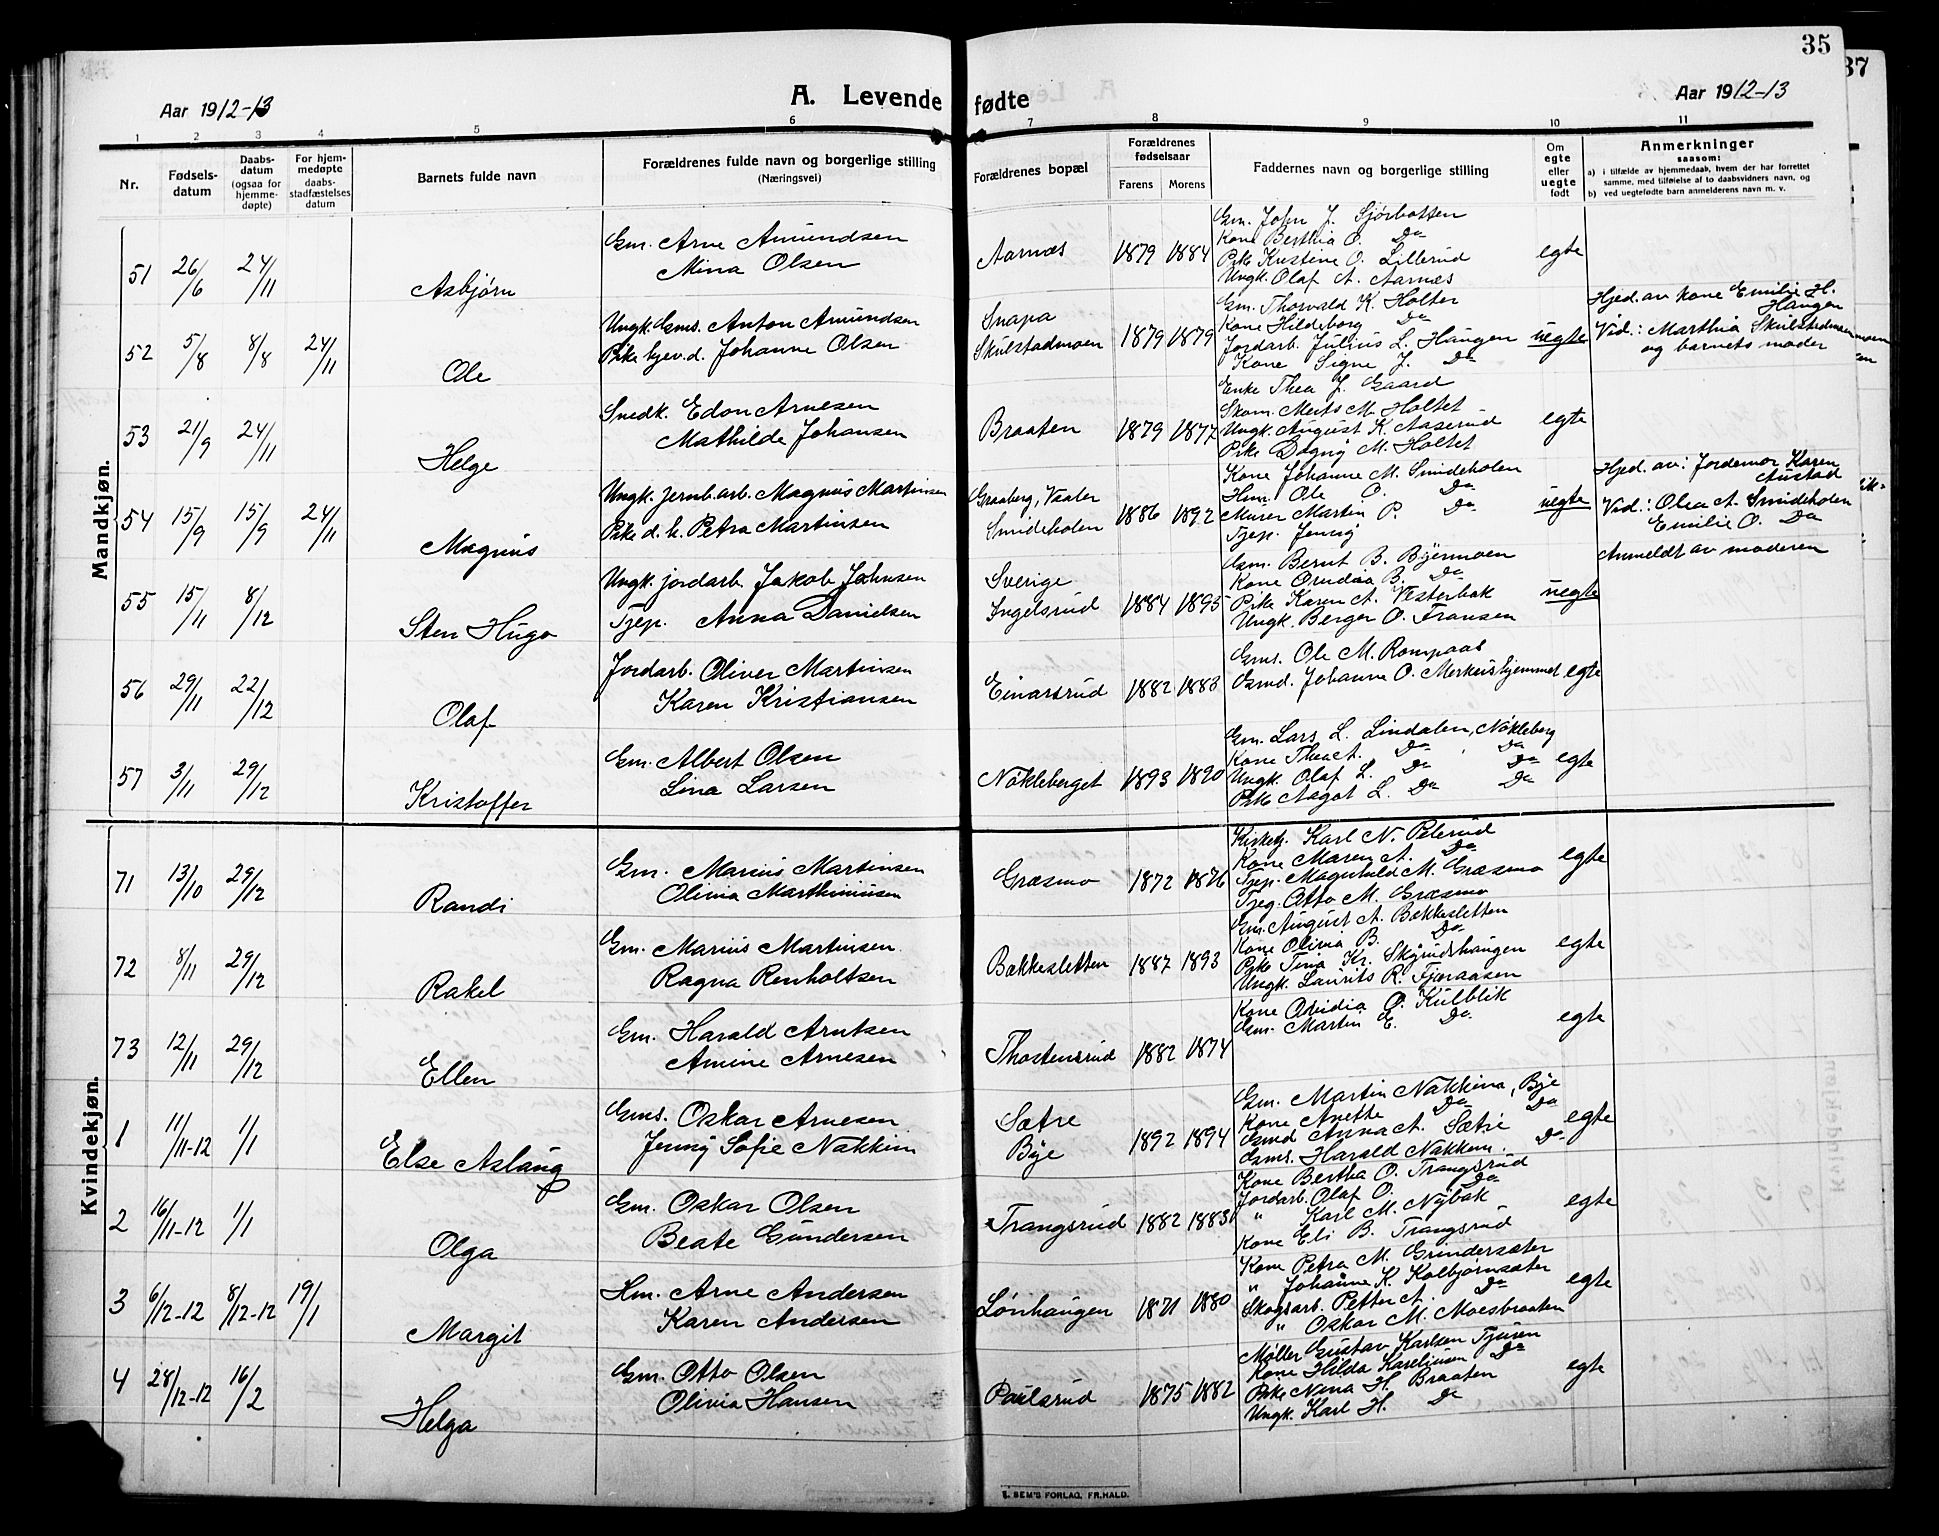 35
37
Aar 1912-13
A. Levende fødte
Aar 1912-13
1 2 3 4 5 6 7 8 9 10 11
Nr.
Fødsels-
datum
Daabs-
datum
(ogsaa for
hjemme-
døpte)
For hjem-
medøpte
daabs-
stadfæstelses
datum
Barnets fulde navn
Forældrenes fulde navn og borgerlige stilling
(Næringsvei)
Forældrenes bopæl
Forældrenes
fødselsaar
Farens Morens
Faddernes navn og borgerlige stilling
Om
egte
eller
uegte
født
Anmerkninger
saasom:
a) i tilfælde av hjemmedaab, hvem der har forrettet
samme, med tilføielse af to daabsvidners navn, og
b) ved uegtefødte barn anmelderens navn m. v.
Mandkjøn.
51 26/6 24/11 Asbjørn
Gm. Arne Amundsen
Mina Olsen
Aarnæs 1879 1884
Gm. John J. Sjørbotten
Kone Berthia O. Do
Pike Kristine O. Lillerud
Ungk. Olaf A. Aarnæs
egte
52 5/8 8/8 24/11 Ole
Ungk. Gms. Anton Amundsen
Pike hjev.d. Johanne Olsen
Snapa
Skulstadmoen 1879 1879
Gm. Thorvald K. Holter
Kone Hildeborg Do
Jordarb. Julius L. Haugen
Kone Signe J. Do
uegte
Hjed. av kone Emilie H.
Haugen
Vid.: Marthia Skulstadmoen
og barnets moder
53 21/9 24/11 Helge
Snedk. Edon Arnesen
Mathilde Johansen
Braaten 1879 1877
Enke Thea J. Gaard
Skom. Merts M. Holtet
Ungk. August K. Aaserud
Pike Dagny M. Holtet
egte
54 15/9 15/9 24/11 Magnus
Ungk. jernb.arb. Magnus Martinsen
Pike d. h. Petra Martinsen
Graaberg, Vaaler
Smideholen 1886 1892
Kone Johanne M. Smideholen
Hm. Ole O. Do
Murer Martin P. Do
Tjep. Jenny
uegte
Hjed. av: Jordemor Karen
Austad
Vid.: Olea A. Smideholen
Emilie O. Do
55 15/11 8/12 Sten Hugo
Ungk. jordarb. Jakob Johnsen
Tjep. Anna Danielsen
Sverige
Ingelsrud 1884 1895
Gsm. Bernt B. Byermoen
Kone Orudia B. Do
Pike Karen A. Vesterbak
Ungk. Berger O. Fransen
uegte
Anmeldt av moderen
56 29/11 22/12 Olaf
Jordarb. Oliver Martinsen
Karen Kristiansen
Einarsrud 1882 1883
Gms. Ole M. Rompaab
Gsmd. Johanne O. Merkushjemmet
egte
57 3/11 29/12 Kristoffer
Gm. Albert Olsen
Lina Larsen
Nökleberget 1893 1890
Gm. Lars L. Lindalen, Nökleberg
Kone Thea A. Do Do
Ungk. Olaf L. Do Do
Pike Aagot L. Do Do
egte
Kvindekjøn.
71 13/10 29/12 Randi
Gm. Marius Martinsen
Olivia Marthiniusen
Græsmo 1872 1876
Kirketj. Karl N. Pelerud
Kone Maren A. Do
Tjep. Magnhild M. Græsmo
Tjeg. Otto M. Græsmo
egte
72 8/11 29/12 Rakel
Gm. Marius Martinsen
Ragna Renholtsen
Bækkesletten 1887 1893
Gm. August A. Bækkesletten
Kone Olivia B. Do
Pike Tina Kr. Skyrudshaugen
Ungk. Laurits R. Fjeraasen
egte
73 12/11 29/12 Ellen
Gm. Harald Arntsen
Amine Arnesen
Thostensrud 1882 1874
Kone Ovidia O. Kulblik
Gsm. Martin E. Do
egte
1 11/11-12 1/1 Else Aslaug
Gms. Oskar Arnesen
Jenny Sofie Nakkim
Sætre
Bye 1892 1894
Gm. Martin Nakkina, Bye
Kone Anette Do Do
Gsmd Anna A. Sætre
Gsms. Harald Nakken. Do
egte
2 16/11-12 1/1 Olga
Gm. Oskar Olsen
Beate Gundersen
Trangsrud 1882 1883
Kone Bertha O. Trangsrud
Jordarb. Olaf O. Do
" Karl M. Nybak
Kone Eli B. Trangsrud
egte
3 6/12-12 8/12-12 19/1 Margit
Hm. Arne Andersen
Karen Andersen
Lønhaugen 1871 1880
Kone Petra M. Grindersæter
" Johanne K. Kolbjørnsæter
Skogsarb. Petter A. Do
" Oskar M. Moesbraaten
egte
4 28/12-12 16/2 Helga
Gm. Otto Olsen
Olivia Hansen
Paulsrud 1875 1882
Møller Gustav Karlsen Tjuren
Kone Hilda Karelius­en Do
Pike Nina H. Braaten
Ungk. Karl H. Do
egte
E. SEM'S FORLAG, FR.HALD.